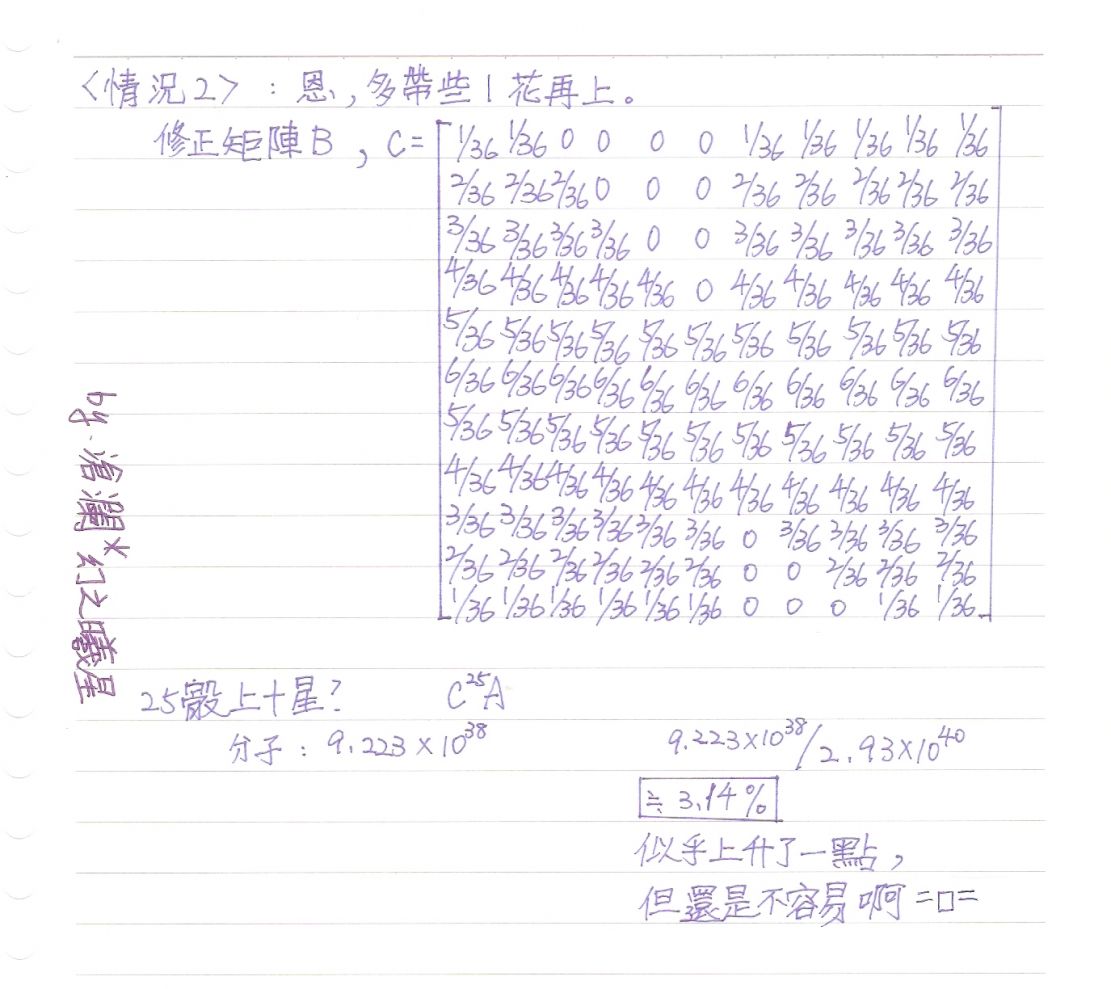 〈情況2〉：恩，多帶些1花再上。
修正矩陣B，C=
1/36 1/36 0 0 0 0 1/36 1/36 1/36 1/36 1/36
2/36 2/36 2/36 0 0 0 2/36 2/36 2/36 2/36 2/36
3/36 3/36 3/36 3/36 0 0 3/36 3/36 3/36 3/36 3/36
4/36 4/36 4/36 4/36 4/36 0 4/36 4/36 4/36 4/36 4/36
5/36 5/36 5/36 5/36 5/36 5/36 5/36 5/36 5/36 5/36 5/36
6/36 6/36 6/36 6/36 6/36 6/36 6/36 6/36 6/36 6/36 6/36
5/36 5/36 5/36 5/36 5/36 5/36 5/36 5/36 5/36 5/36 5/36
4/36 4/36 4/36 4/36 4/36 4/36 4/36 4/36 4/36 4/36 4/36
3/36 3/36 3/36 3/36 3/36 3/36 0 3/36 3/36 3/36 3/36
2/36 2/36 2/36 2/36 2/36 2/36 0 0 2/36 2/36 2/36
1/36 1/36 1/36 1/36 1/36 1/36 0 0 0 1/36 1/36
by.滄瀾*幻之曦星
25骰上十星? C²⁵A
分子：9.223×10³⁸ 9.223×10³⁸/2.93×10⁴⁰
≒3.14%
似乎上升了一點，
但還是不容易啊=口=